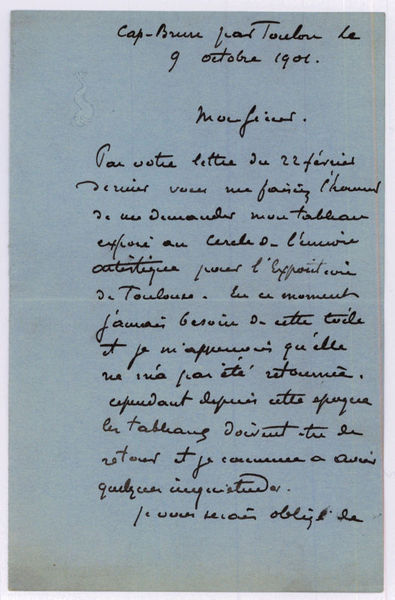 Cap-Brun par Toulon le
9 octobre 1901.
Monsieur.
Par votre lettre du 22 février
dernier vous me faisiez l'honneur
de me demander mon tableau
exposé au Cercle de l'union
artistique pour l'Exposition
de Toulouse. En ce moment
j'aurais besoin de cette toile
et je m'aperçois qu'elle
ne m'a pas été retournée.
Cependant depuis cette époque
les tableaux doivent être de
retour et je commence a avoir
quelques inquiétudes.
Je vous serais obligé de